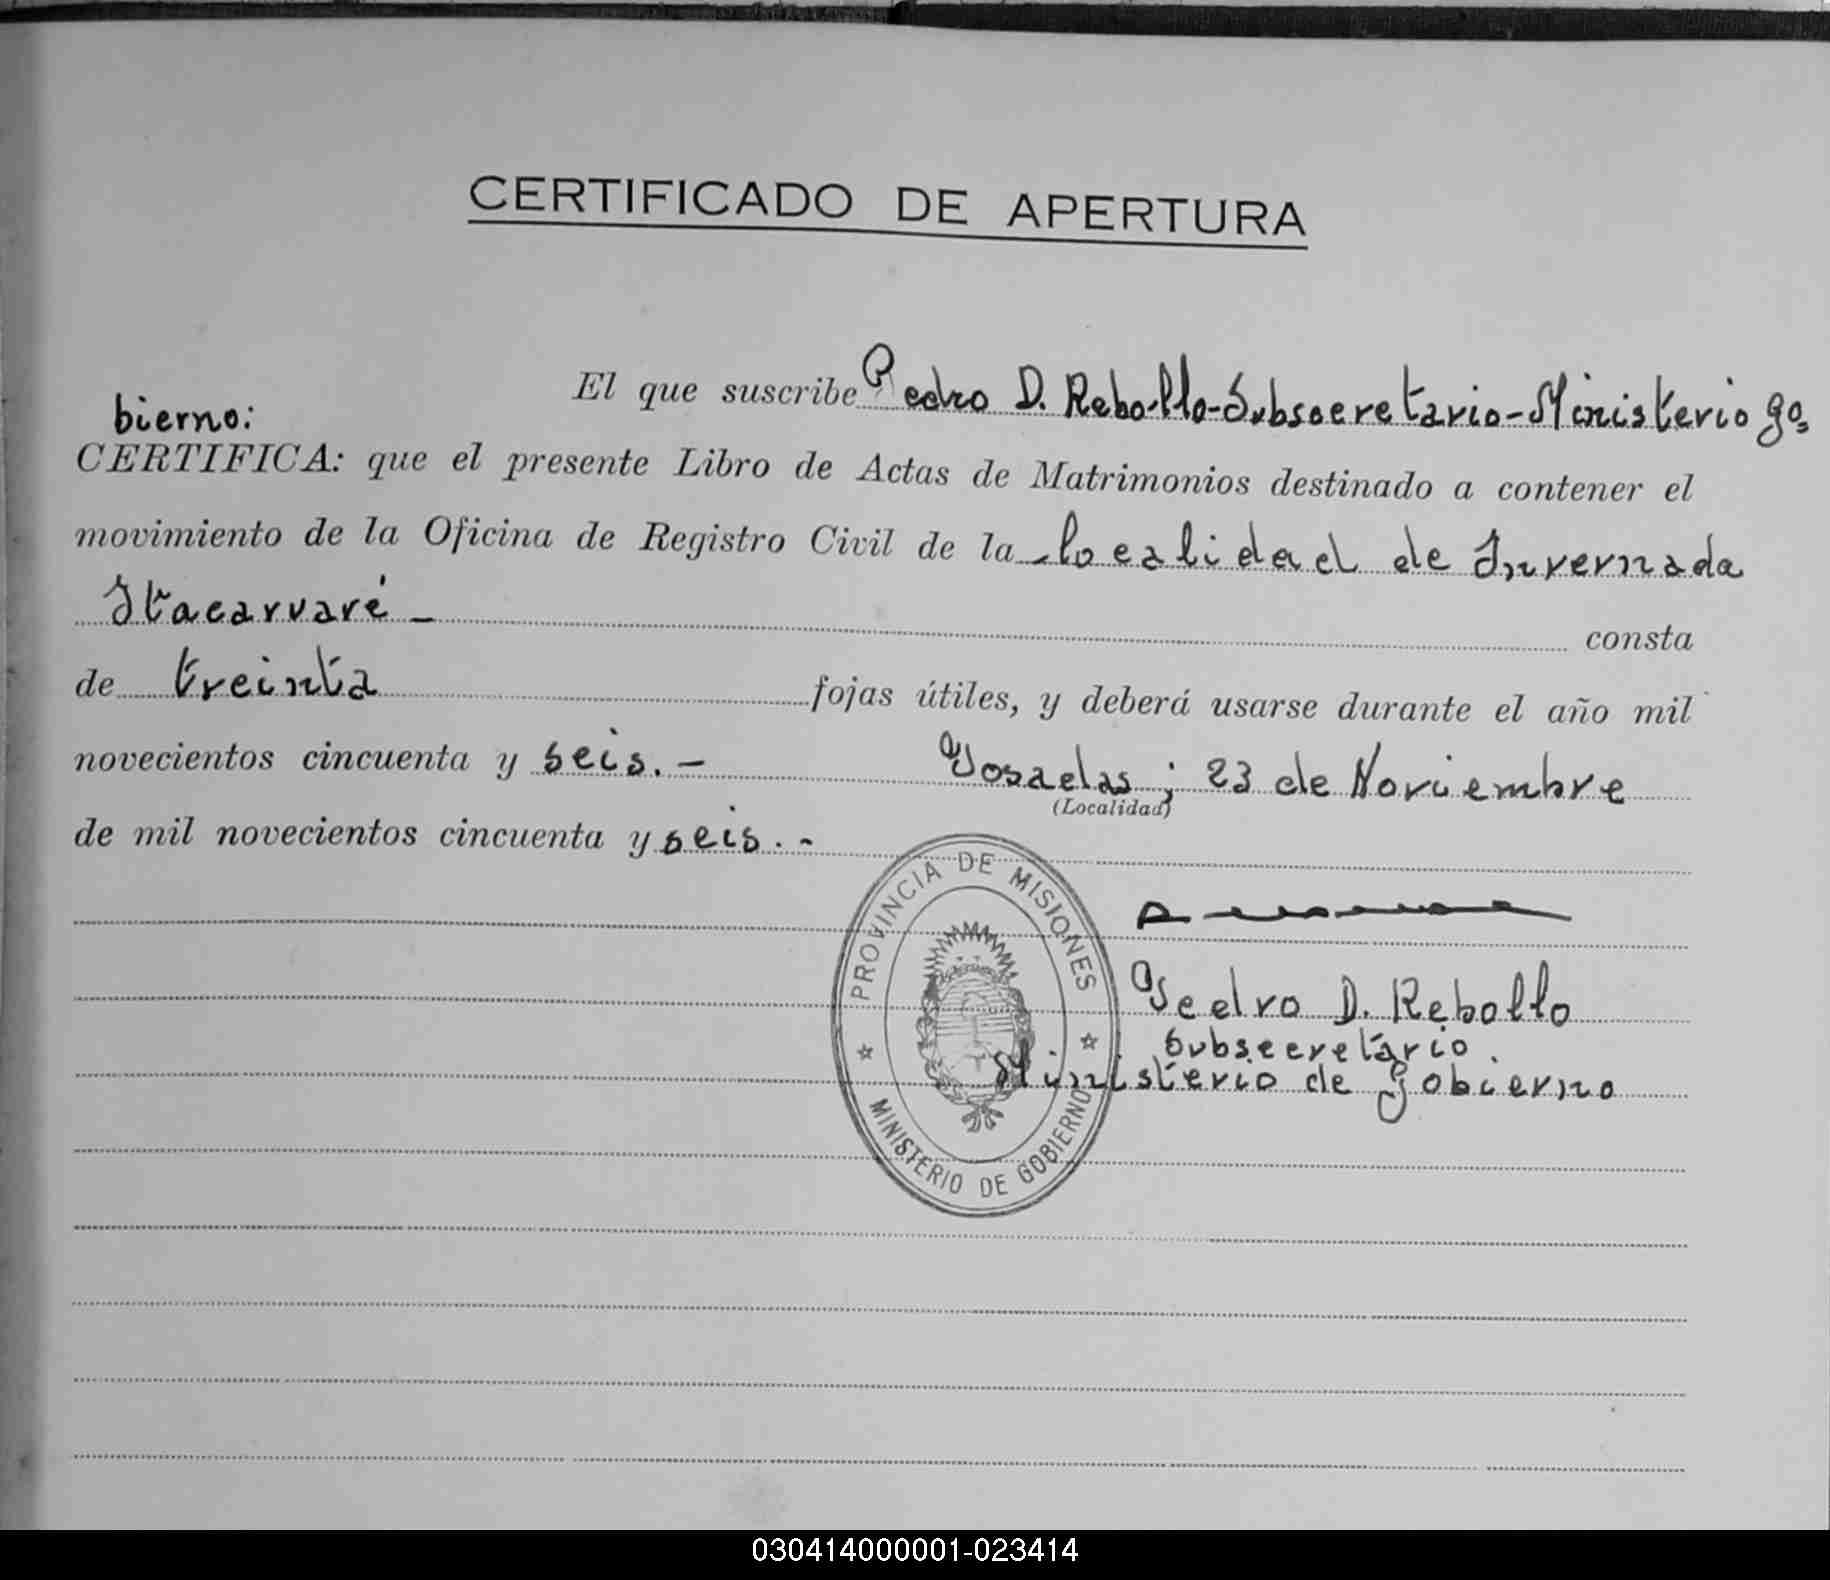 CERTIFICADO DE APERTURA
El que suscribe Pedro D. Rebollo-Subsecretario-Ministerio go=
bierno:
CERTIFICA: que el presente Libro de Actas de Matrimonios destinado a contener el
movimiento de la Oficina de Registro Civil de la localidad de Invernada
Itacarvaré - consta
de treinta fojas útiles, y deberá usarse durante el año mil
novecientos cincuenta y seis.- Posadas; 23 de Noviembre
(Localidad)
de mil novecientos cincuenta y seis.-
PROVINCIA DE MISIONES
MINISTERIO DE GOBIERNO
Pedro D. Rebollo
Subsecretario.
Ministerio de Gobierno
030414000001-023414